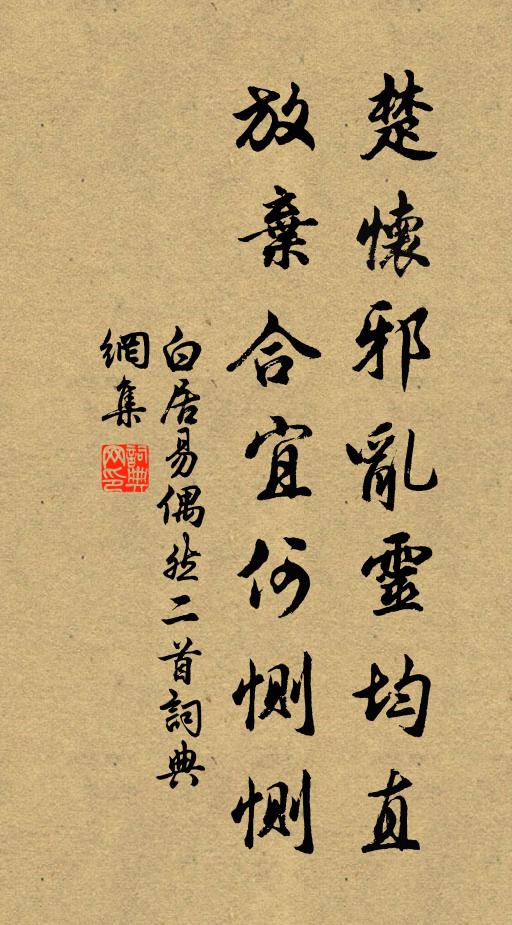 楚懷邪亂靈均直
放棄合宜何惻惻
白居易偶然二首詞典
網集
詞典
网印